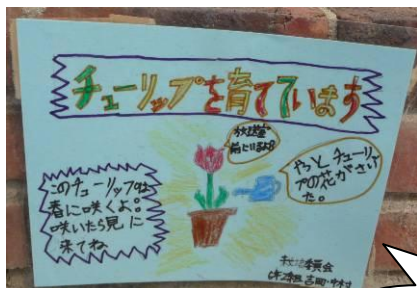 チューリップを育てています
放送室
前にいるよ♪
やっと、チューリ
プの花がさい
た。
このチューリップは
春に咲くよ。
咲いたら見に
来てね
委員会